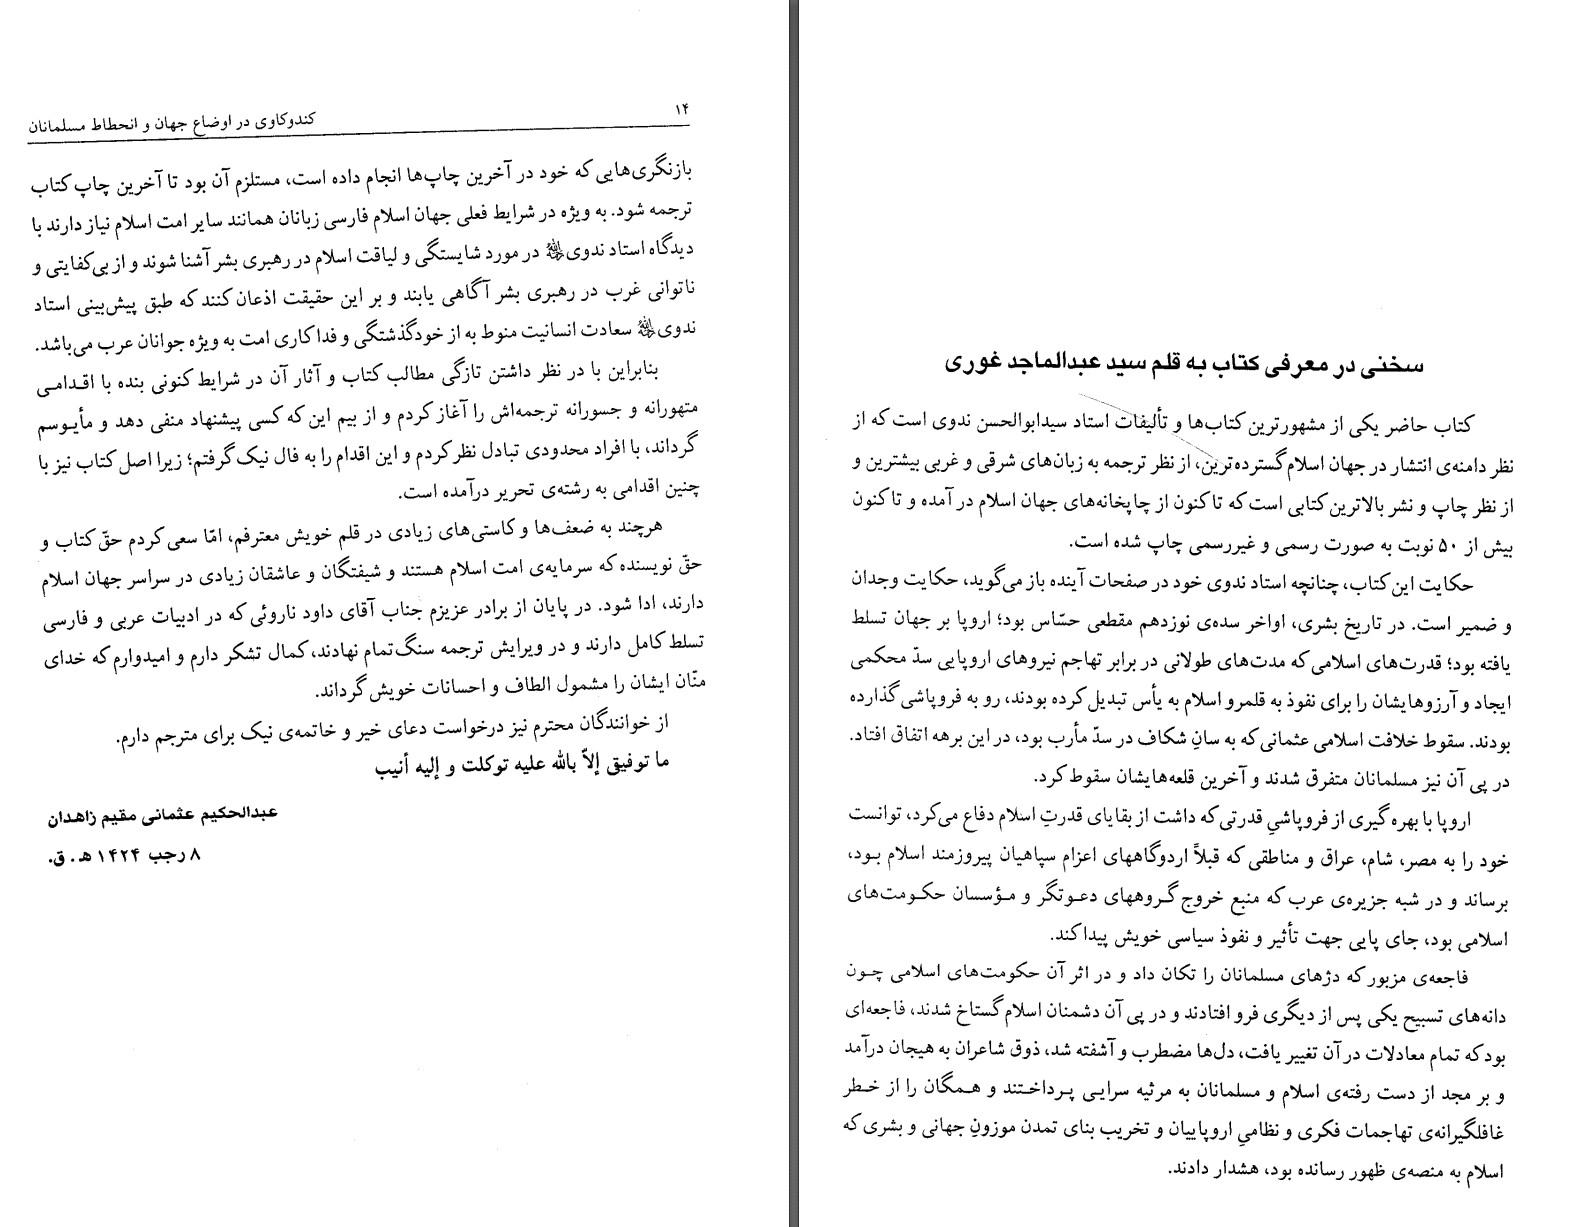 ۱۴
کندوکاوی در اوضاع جهان و انحطاط مسلمانان
بازنگری‌هایی که خود در آخرین چاپ‌ها انجام داده است، مستلزم آن بود تا آخرین چاپ کتاب
ترجمه شود. به ویژه در شرایط فعلی جهان اسلام فارسی زبانان همانند سایر امت اسلام نیاز دارند با
دیدگاه استاد ندوی در مورد شایستگی و لیاقت اسلام در رهبری بشر آشنا شوند و از بی‌کفایتی و
ناتوانی غرب در رهبری بشر آگاهی یابند و بر این حقیقت اذعان کنند که طبق پیش‌بینی استاد
ندوی سعادت انسانیت منوط به از خودگذشتگی و فداکاری امت به ویژه جوانان عرب می‌باشد.
بنابراین با در نظر داشتن تازگی مطالب کتاب و آثار آن در شرایط کنونی بنده با اقدامی
متهورانه و جسورانه ترجمه‌اش را آغاز کردم و از بیم این که کسی پیشنهاد منفی دهد و مأیوسم
گرداند، با افراد محدودی تبادل نظر کردم و این اقدام را به فال نیک گرفتم؛ زیرا اصل کتاب نیز با
چنین اقدامی به رشته‌ی تحریر درآمده است.
هرچند به ضعف‌ها و کاستی‌های زیادی در قلم خویش معترفم، امّا سعی کردم حقّ کتاب و
حقّ نویسنده که سرمایه‌ی امت اسلام هستند و شیفتگان و عاشقان زیادی در سراسر جهان اسلام
دارند، ادا شود. در پایان از برادر عزیزم جناب آقای داود ناروئی که در ادبیات عربی و فارسی
تسلط کامل دارند و در ویرایش ترجمه سنگ تمام نهادند، کمال تشکر دارم و امیدوارم که خدای
منّان ایشان را مشمول الطاف و احسانات خویش گرداند.
از خوانندگان محترم نیز درخواست دعای خیر و خاتمه‌ی نیک برای مترجم دارم.
ما توفیقی إلاّ بالله علیه توکلت و إلیه أنیب
عبدالحکیم عثمانی مقیم زاهدان
۸ رجب ۱۴۲۴ هـ . ق.
سخنی در معرفی کتاب به قلم سید عبدالماجد غوری
کتاب حاضر یکی از مشهورترین کتاب‌ها و تألیفات استاد سیدابوالحسن ندوی است که از
نظر دامنه‌ی انتشار در جهان اسلام گسترده‌ترین، از نظر ترجمه به زبان‌های شرقی و غربی بیشترین و
از نظر چاپ و نشر بالاترین کتابی است که تاکنون از چاپخانه‌های جهان اسلام در آمده و تا کنون
بیش از ۵۰ نوبت به صورت رسمی و غیررسمی چاپ شده است.
حکایت این کتاب، چنانچه استاد ندوی خود در صفحات آینده باز می‌گوید، حکایت وجدان
و ضمیر است. در تاریخ بشری، اواخر سده‌ی نوزدهم مقطعی حسّاس بود؛ اروپا بر جهان تسلط
یافته بود؛ قدرت‌های اسلامی که مدت‌های طولانی در برابر تهاجم نیروهای اروپایی سدّ محکمی
ایجاد و آرزوهایشان را برای نفوذ به قلمرو اسلام به یأس تبدیل کرده بودند، رو به فروپاشی گذارده
بودند. سقوط خلافت اسلامی عثمانی که به سانِ شکاف در سدّ مأرب بود، در این برهه اتفاق افتاد.
در پی آن نیز مسلمانان متفرق شدند و آخرین قلعه‌هایشان سقوط کرد.
اروپا با بهره گیری از فروپاشیِ قدرتی که داشت از بقایای قدرتِ اسلام دفاع می‌کرد، توانست
خود را به مصر، شام، عراق و مناطقی که قبلاً اردوگاههای اعزام سپاهیان پیروزمند اسلام بود،
برساند و در شبه جزیره‌ی عرب که منبع خروج گروههای دعوتگر و مؤسسان حکومت‌های
اسلامی بود، جای پایی جهت تأثیر و نفوذ سیاسی خویش پیدا کند.
فاجعه‌ی مزبور که دژهای مسلمانان را تکان داد و در اثر آن حکومت‌های اسلامی چون
دانه‌های تسبیح یکی پس از دیگری فرو افتادند و در پی آن دشمنان اسلام گستاخ شدند، فاجعه‌ای
بود که تمام معادلات در آن تغییر یافت، دل‌ها مضطرب و آشفته شد، ذوق شاعران به هیجان درآمد
و بر مجد از دست رفته‌ی اسلام و مسلمانان به مرثیه سرایی پرداختند و همگان را از خطر
غافلگیرانه‌ی تهاجمات فکری و نظامیِ اروپاییان و تخریب بنای تمدن موزونِ جهانی و بشری که
اسلام به منصه‌ی ظهور رسانده بود، هشدار دادند.